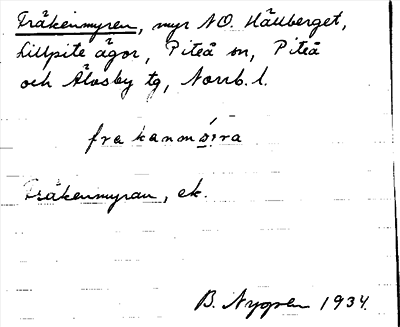 Fräkenmyren, myr NO. Hällberget,
Lillpite ägor, Piteå sn, Piteå
och Älvsby tg, Norrb. l.
frakanmo̱i̱ra
Fräkenmyran, ek.
B. Nygren 1934.